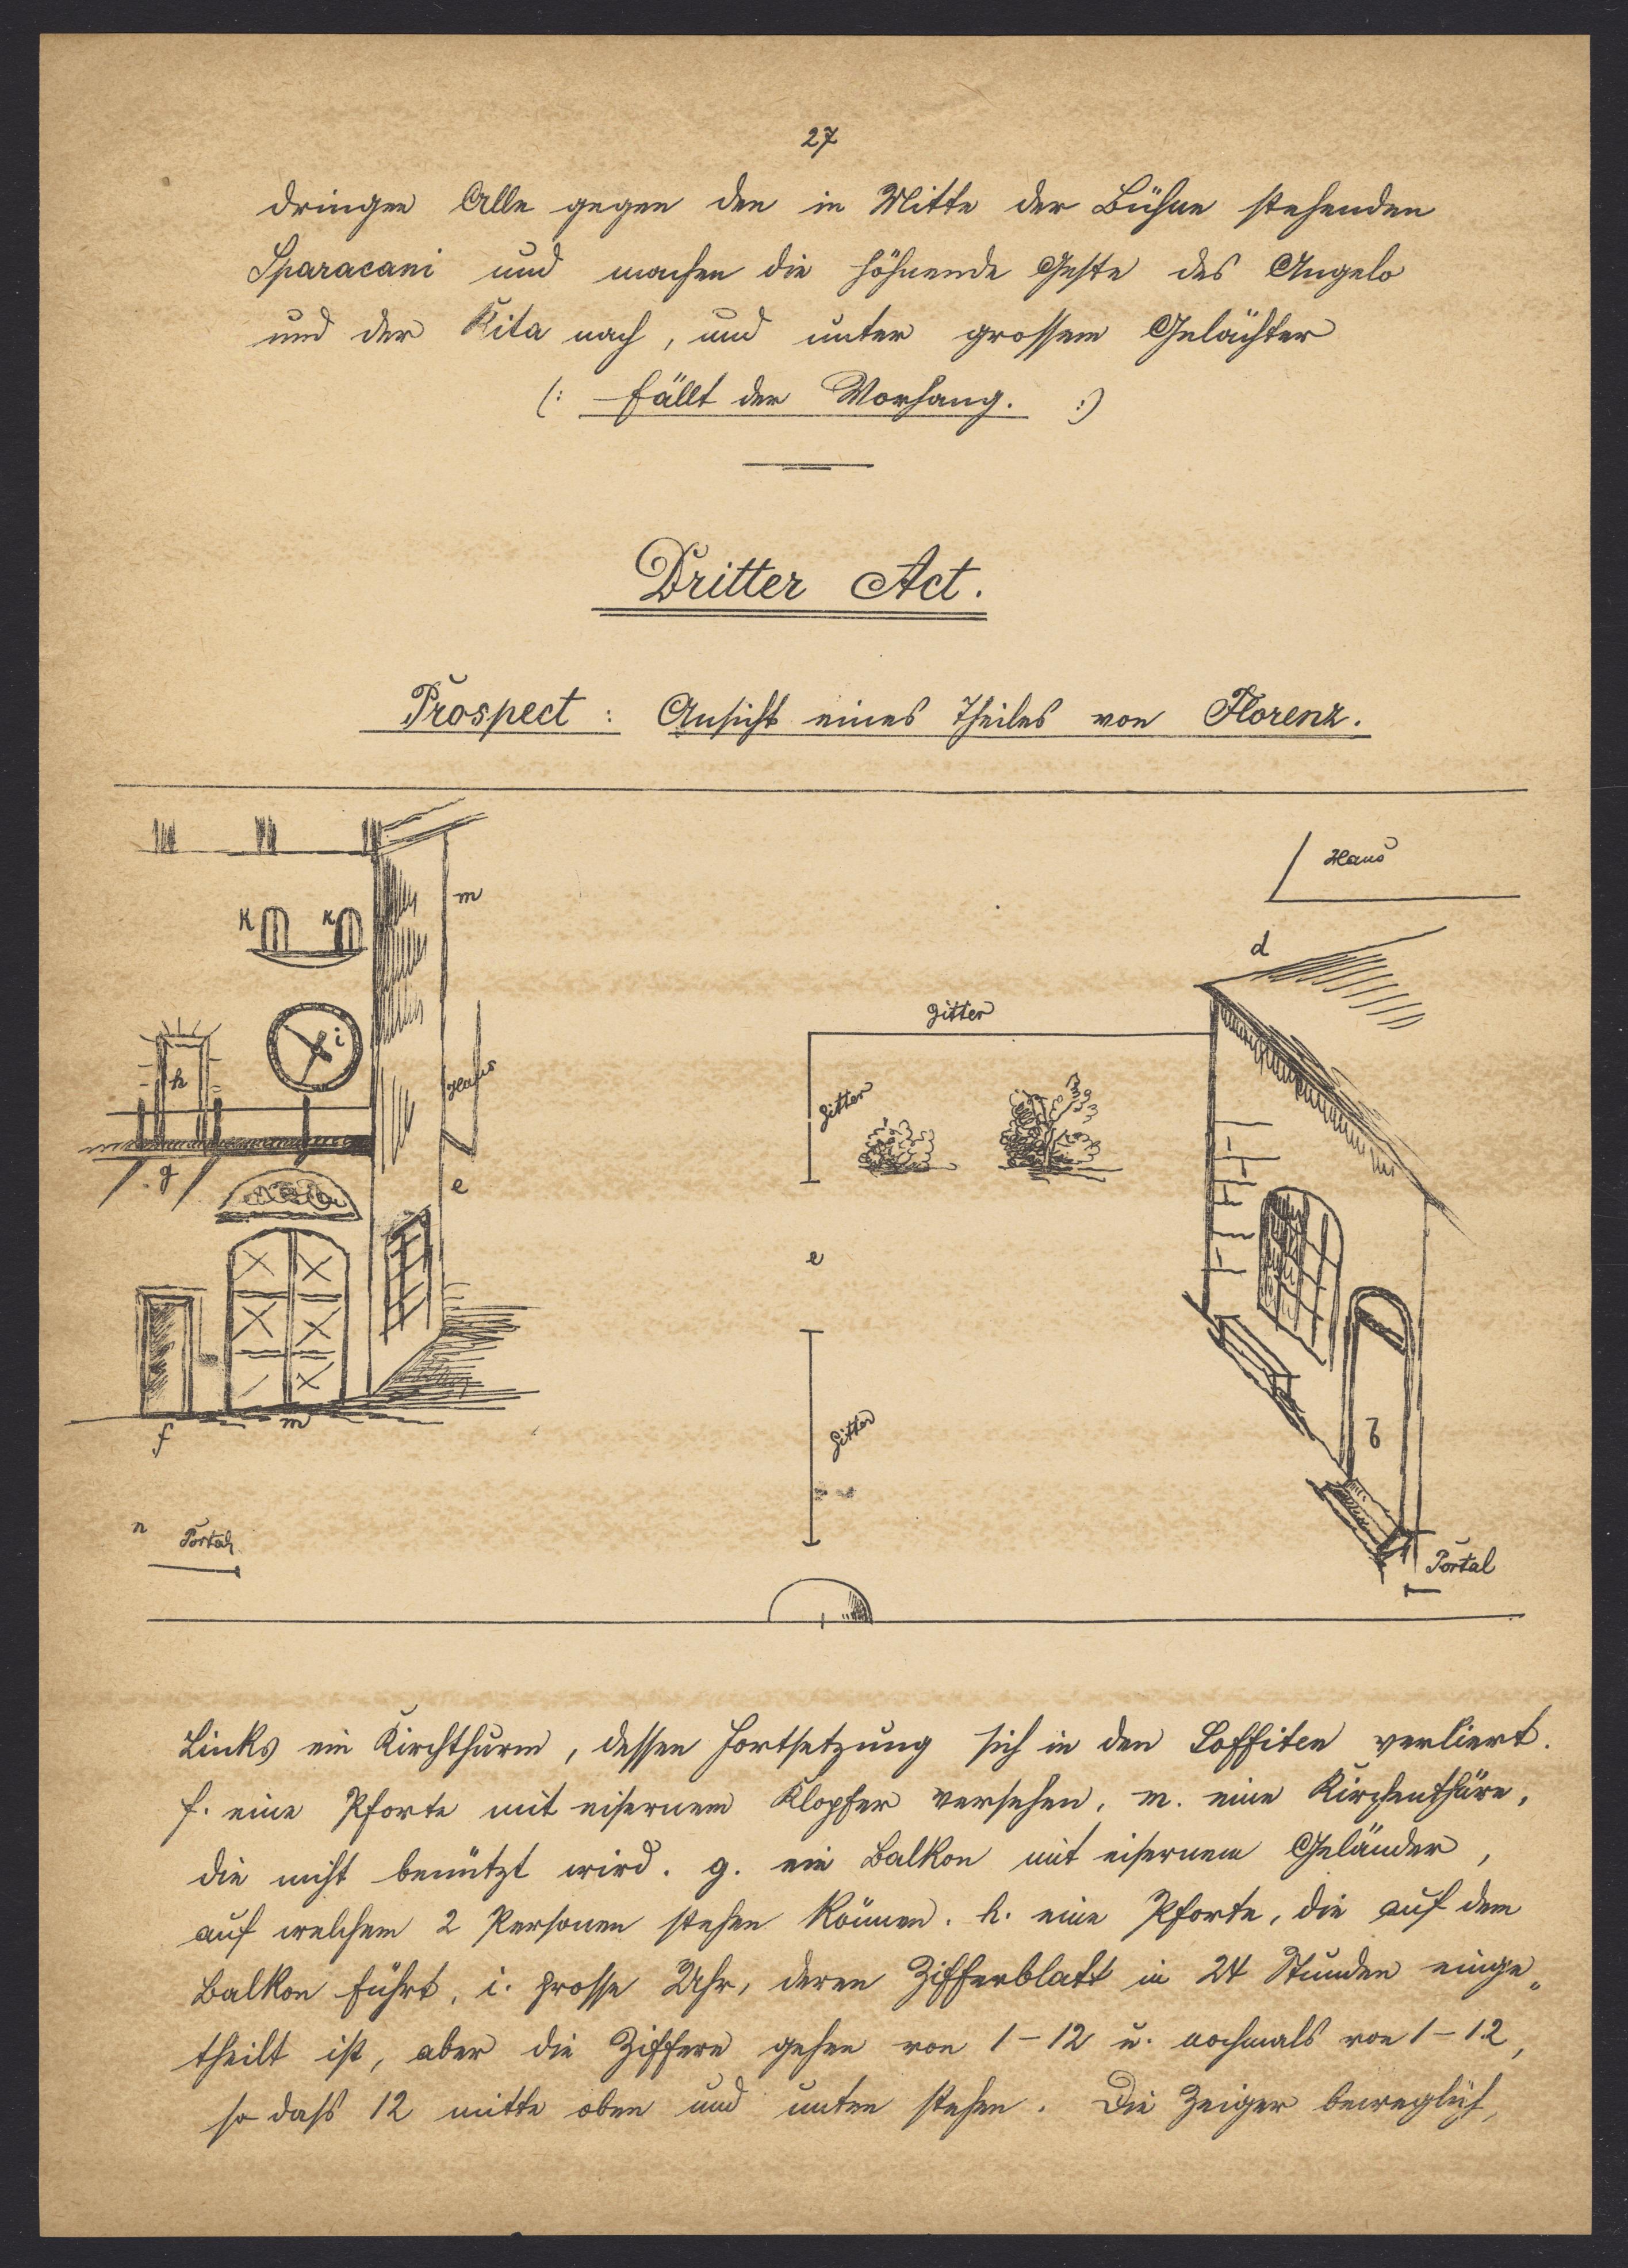 27
dringen Alle gegen den in Mitte der Bühne stehenden
Sparacani und machen die höhnende Geste des Angelo
und der Rita nach, und unter grossem Gelächter
(: fällt der Vorhang. :)
Dritter Act.
Prospect: Ansicht eines Theiles von Florenz.
Haus
m
K K
d
Gitter
i
h
Haus
Gitter
g
e
e
Gitter
b
f
m
n Portal
Portal
Links ein Kirchthurm, dessen Fortsetzung sich in den Soffiten verliert.
f. eine Pforte mit eisernem Klopfer versehen, m. eine Kirchenthüre,
die nicht benützt wird. g. ein Balkon mit eisernem Geländer,
auf welchem 2 Personen stehen können. h. eine Pforte, die auf dem
Balkon führt, i. grosse Uhr, deren Zifferblatt in 24 Stunden einge„
theilt ist, aber die Ziffern gehen von 1-12 u. nochmals von 1-12,
so dass 12 mitte oben und unten stehen. Die Zeiger beweglich,